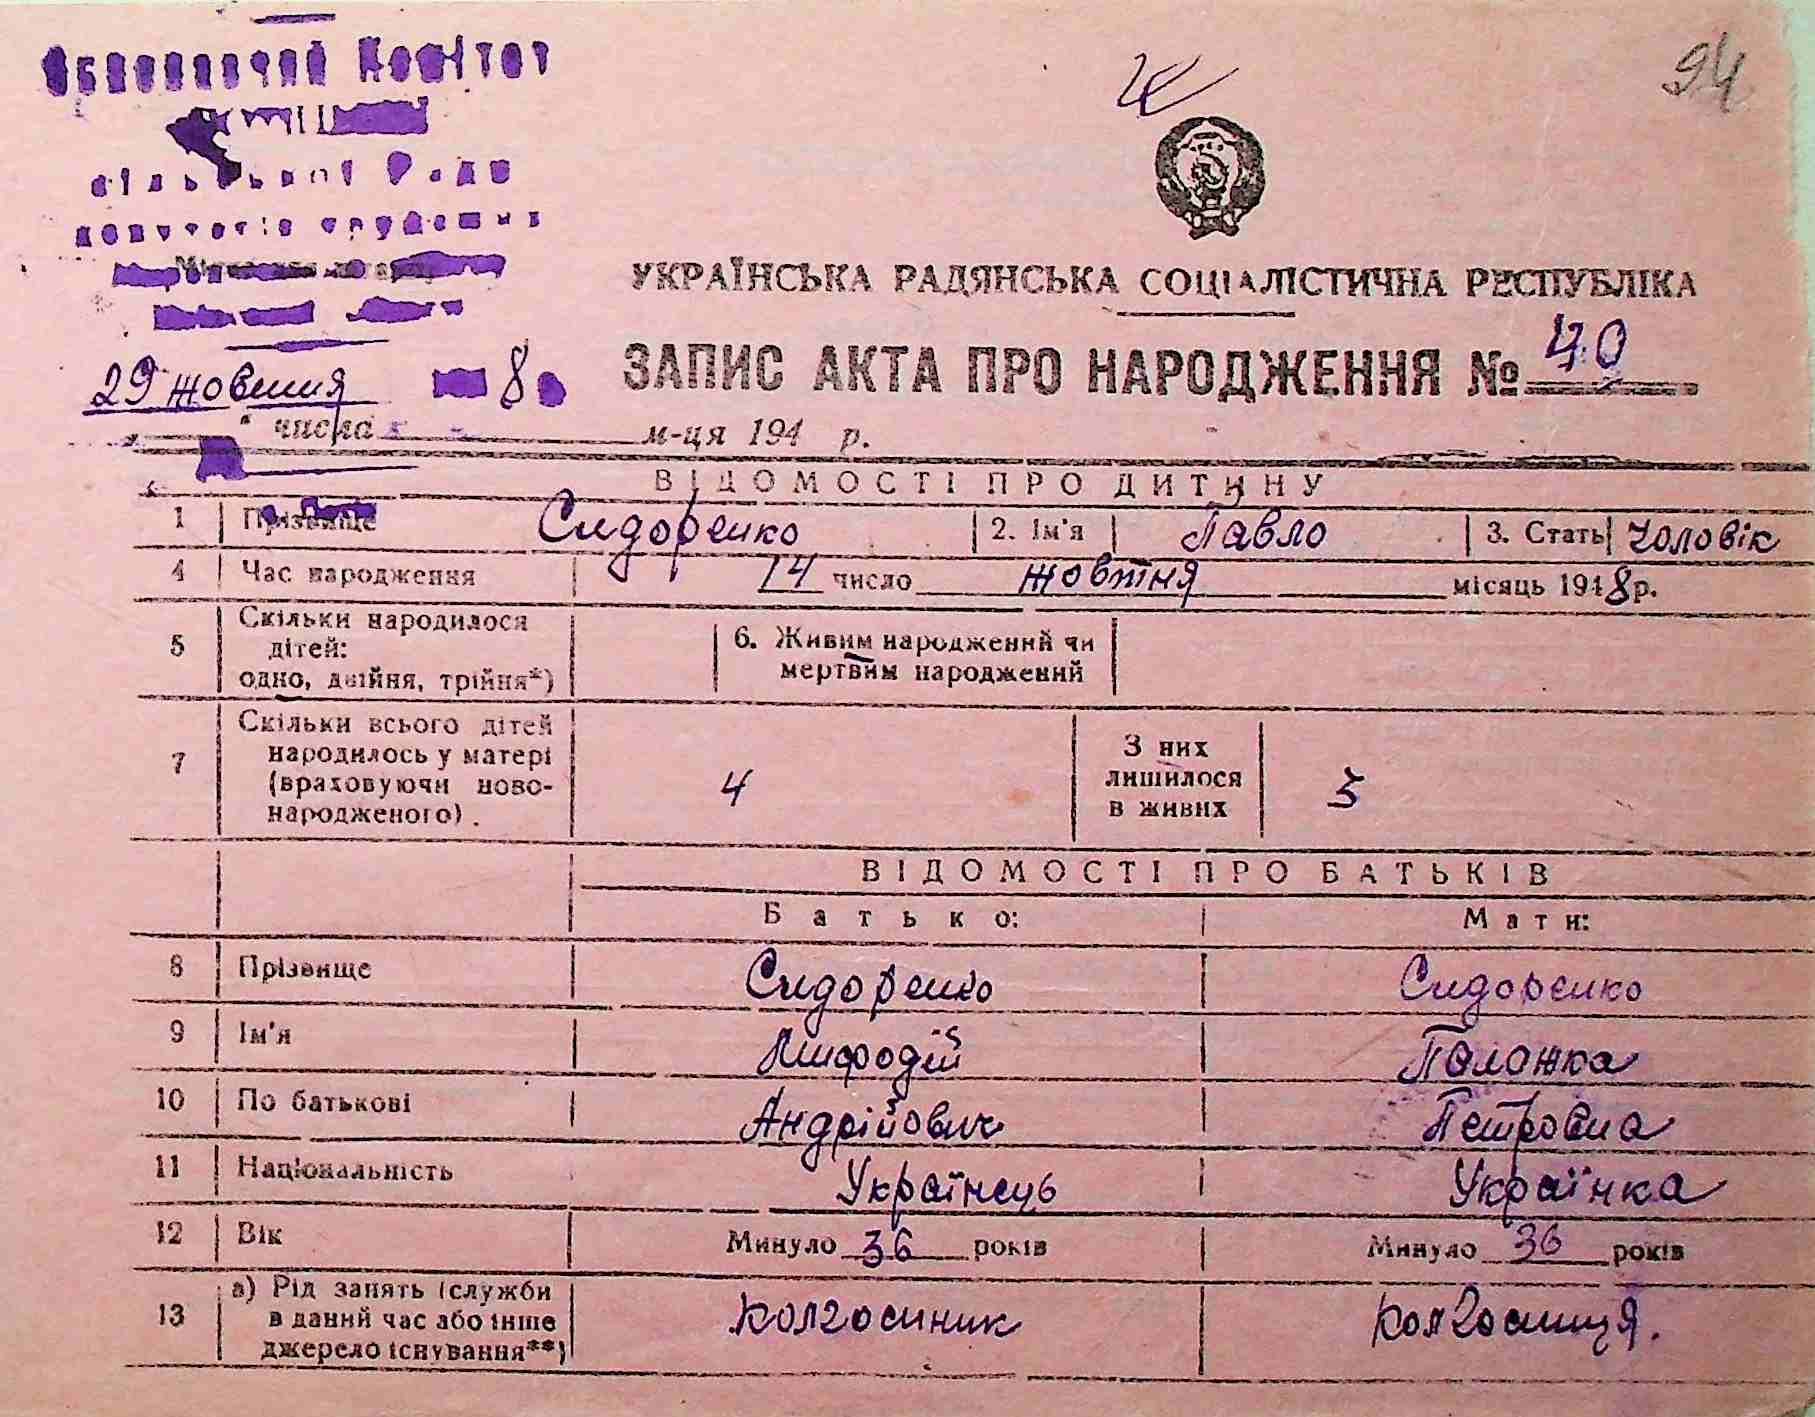 94
Виконавчий Комітет
сільської Ради
депутатів трудящих
УКРАЇНСЬКА РАДЯНСЬКА СОЦІАЛІСТИЧНА РЕСПУБЛІКА
ЗАПИС АКТА ПРО НАРОДЖЕННЯ № 40
29 жовтня 8
числа м-ця 194 р.
ВІДОМОСТІ ПРО ДИТИНУ
1 Прізвище Сидоренко 2. Ім'я Павло 3. Стать чоловік
4 Час народження 14 число жовтня місяць 1948 р.
5 Скільки народилося дітей: одно, двійня, трійня*) 6. Живим народжений чи мертвим народжений
7 Скільки всього дітей народилось у матері (враховуючи ново-народженого). 4 З них лишилося в живих 3
ВІДОМОСТІ ПРО БАТЬКІВ
Батько: Мати:
8 Прізвище Сидоренко Сидоренко
9 Ім'я Мифодій Палажка
10 По батькові Андрійович Петровна
11 Національність Українець Українка
12 Вік Минуло 36 років Минуло 36 років
13 а) Рід занять (служби в даний час або інше джерело існування**) колгоспник колгоспниця.